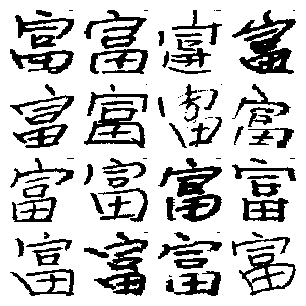 富富富富
富富富富
富富富富
富富富富